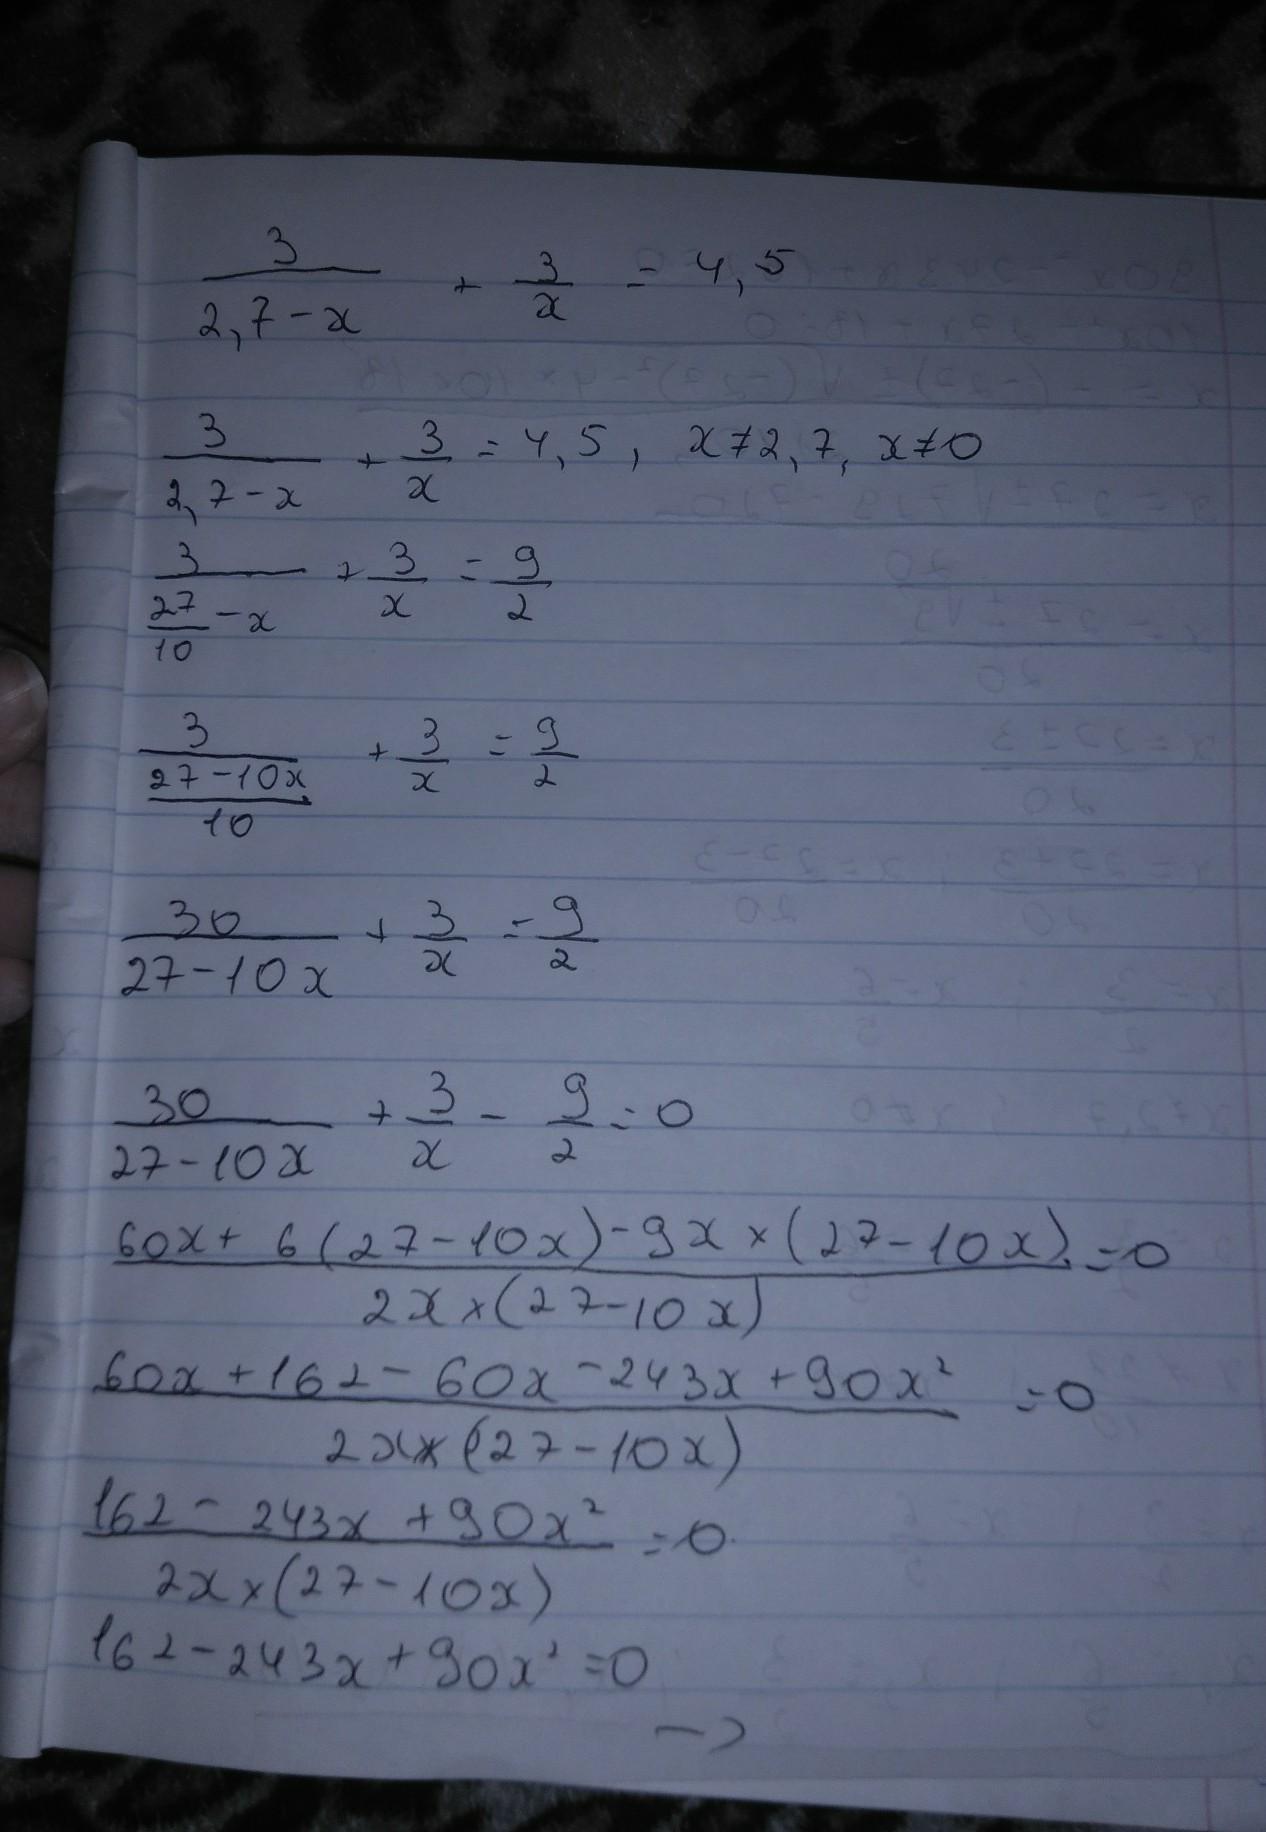 3/(2,7-x) + 3/x = 4,5
3/(2,7-x) + 3/x = 4,5, x≠2,7, x≠0
3/(27/10-x) + 3/x = 9/2
3/((27-10x)/10) + 3/x = 9/2
30/(27-10x) + 3/x = 9/2
30/(27-10x) + 3/x - 9/2 = 0
(60x + 6(27-10x) - 9x×(27-10x))/(2x×(27-10x)) = 0
(60x + 162 - 60x - 243x + 90x²)/(2x×(27-10x)) = 0
(162 - 243x + 90x²)/(2x×(27-10x)) = 0
162 - 243x + 90x² = 0
→